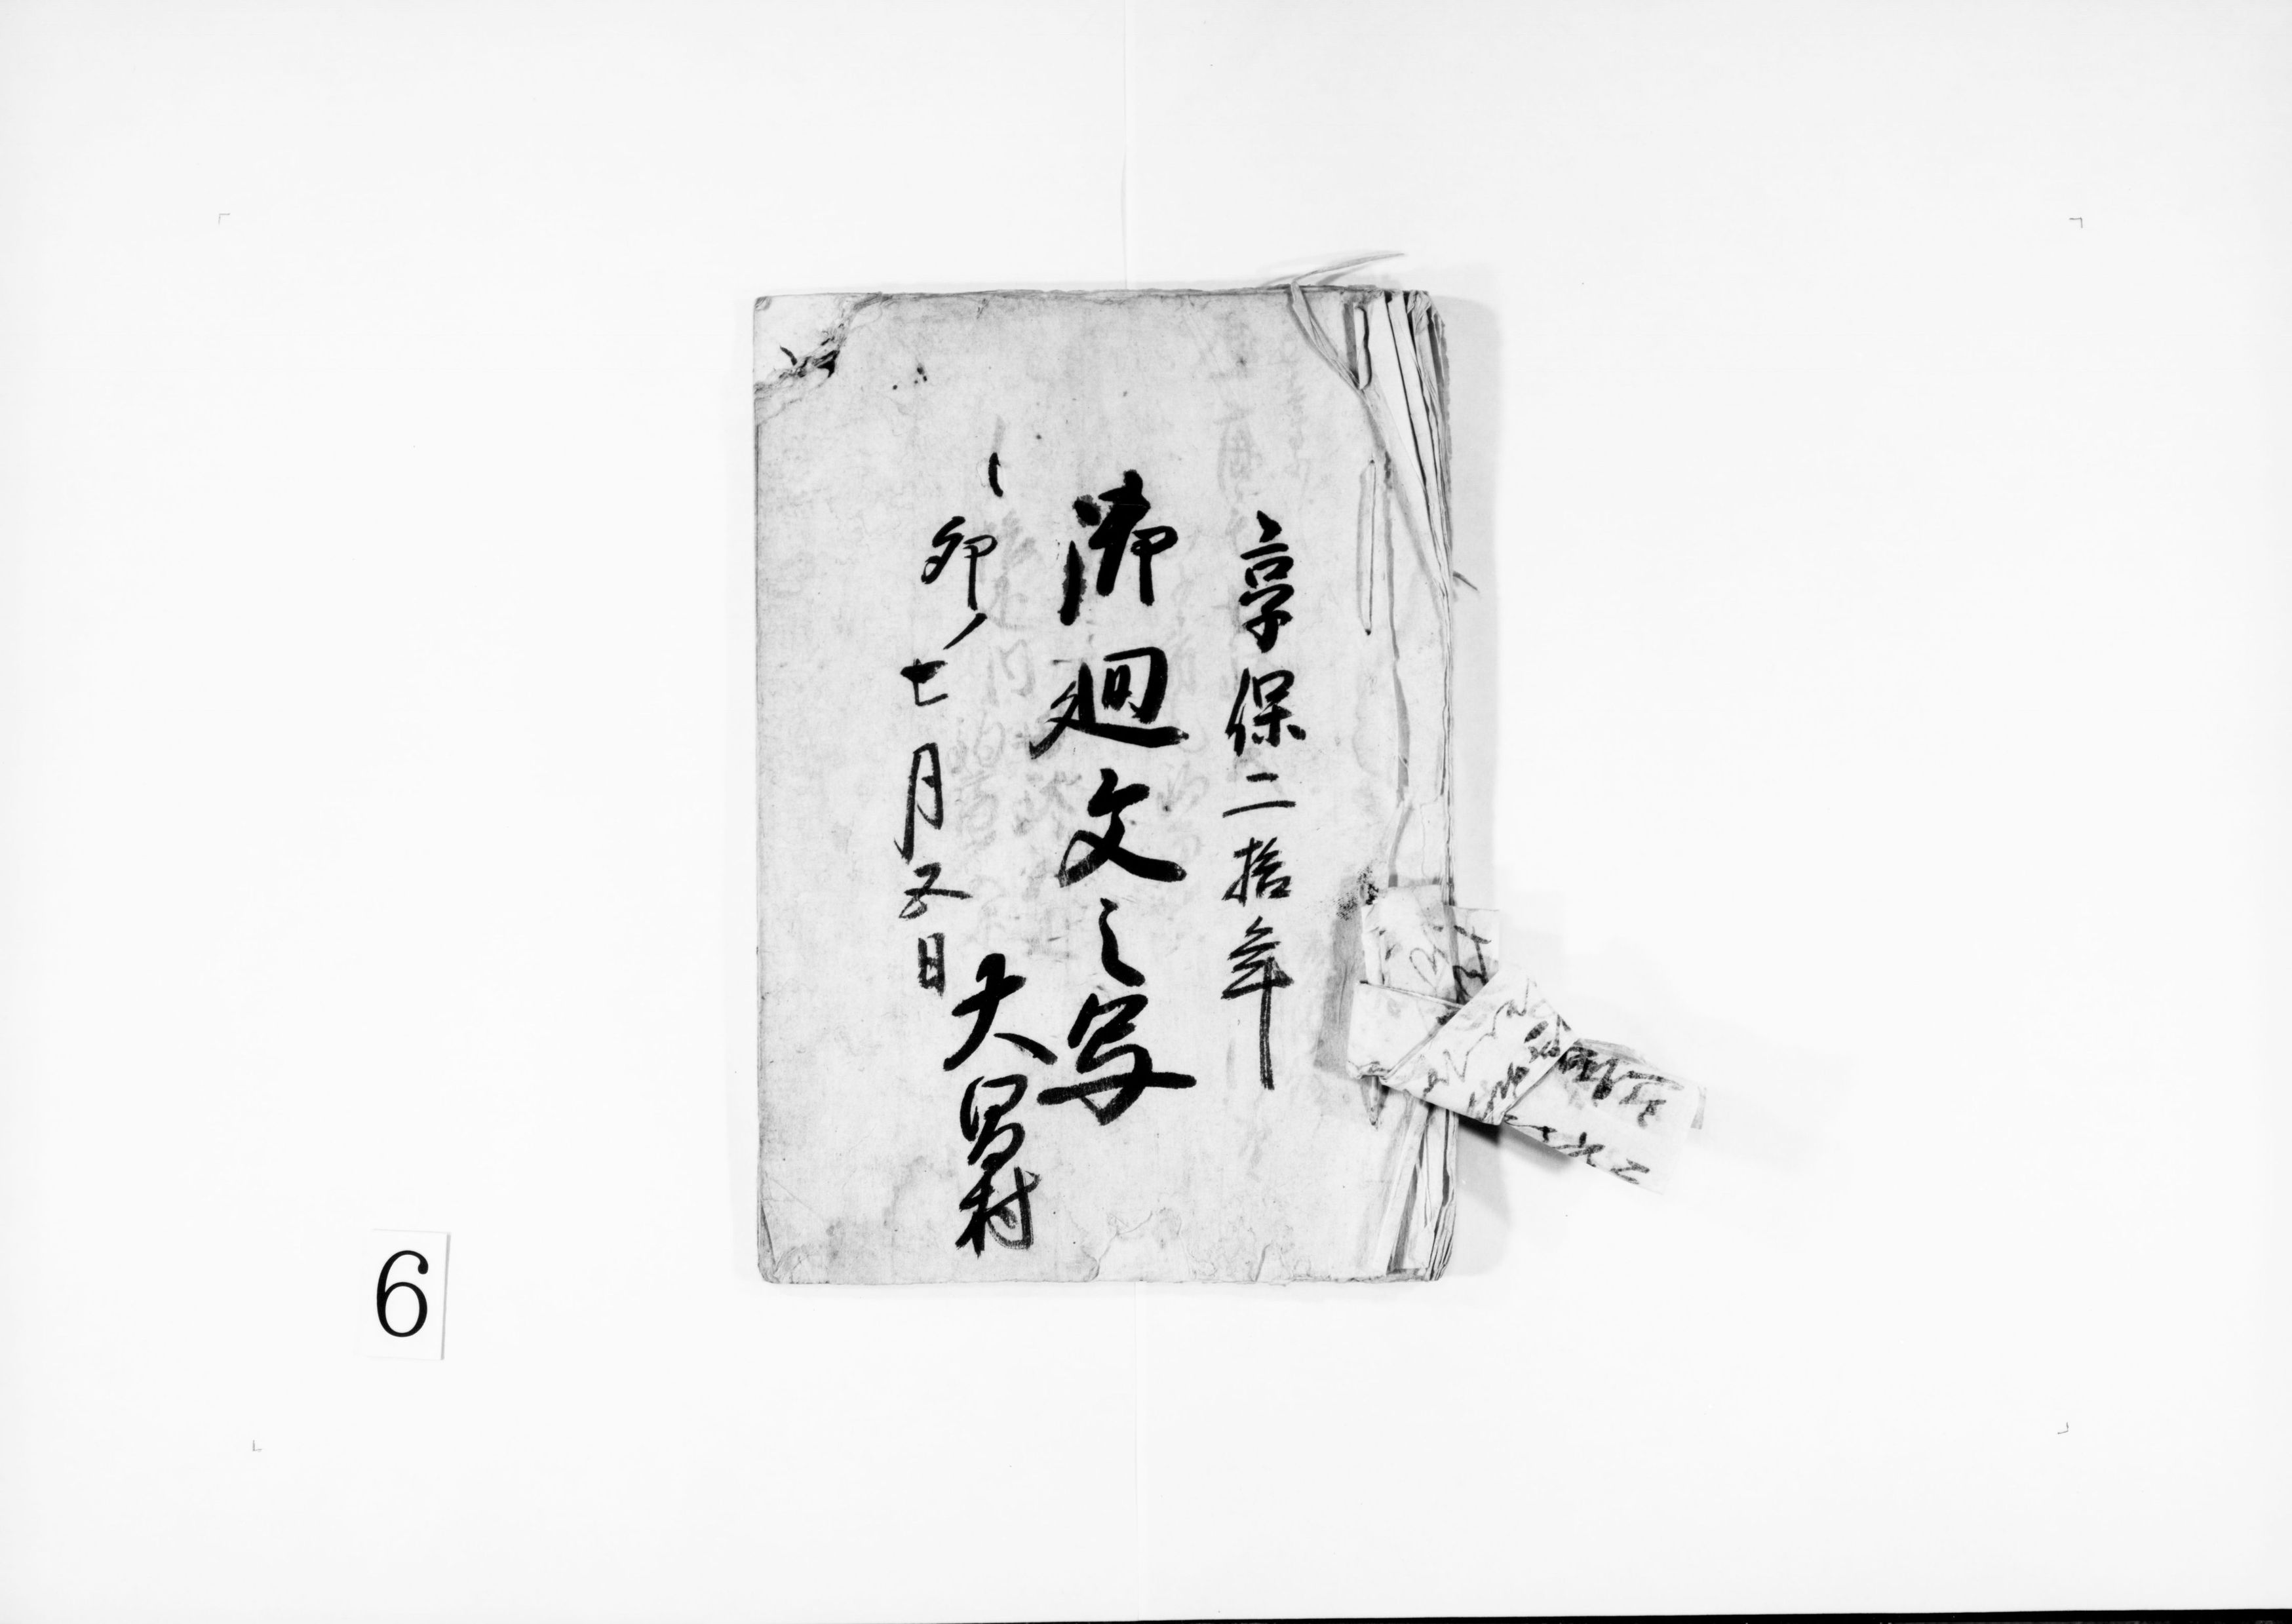 享保二拾年
御廻文之写
卯ノ七月五日
大冨村
6